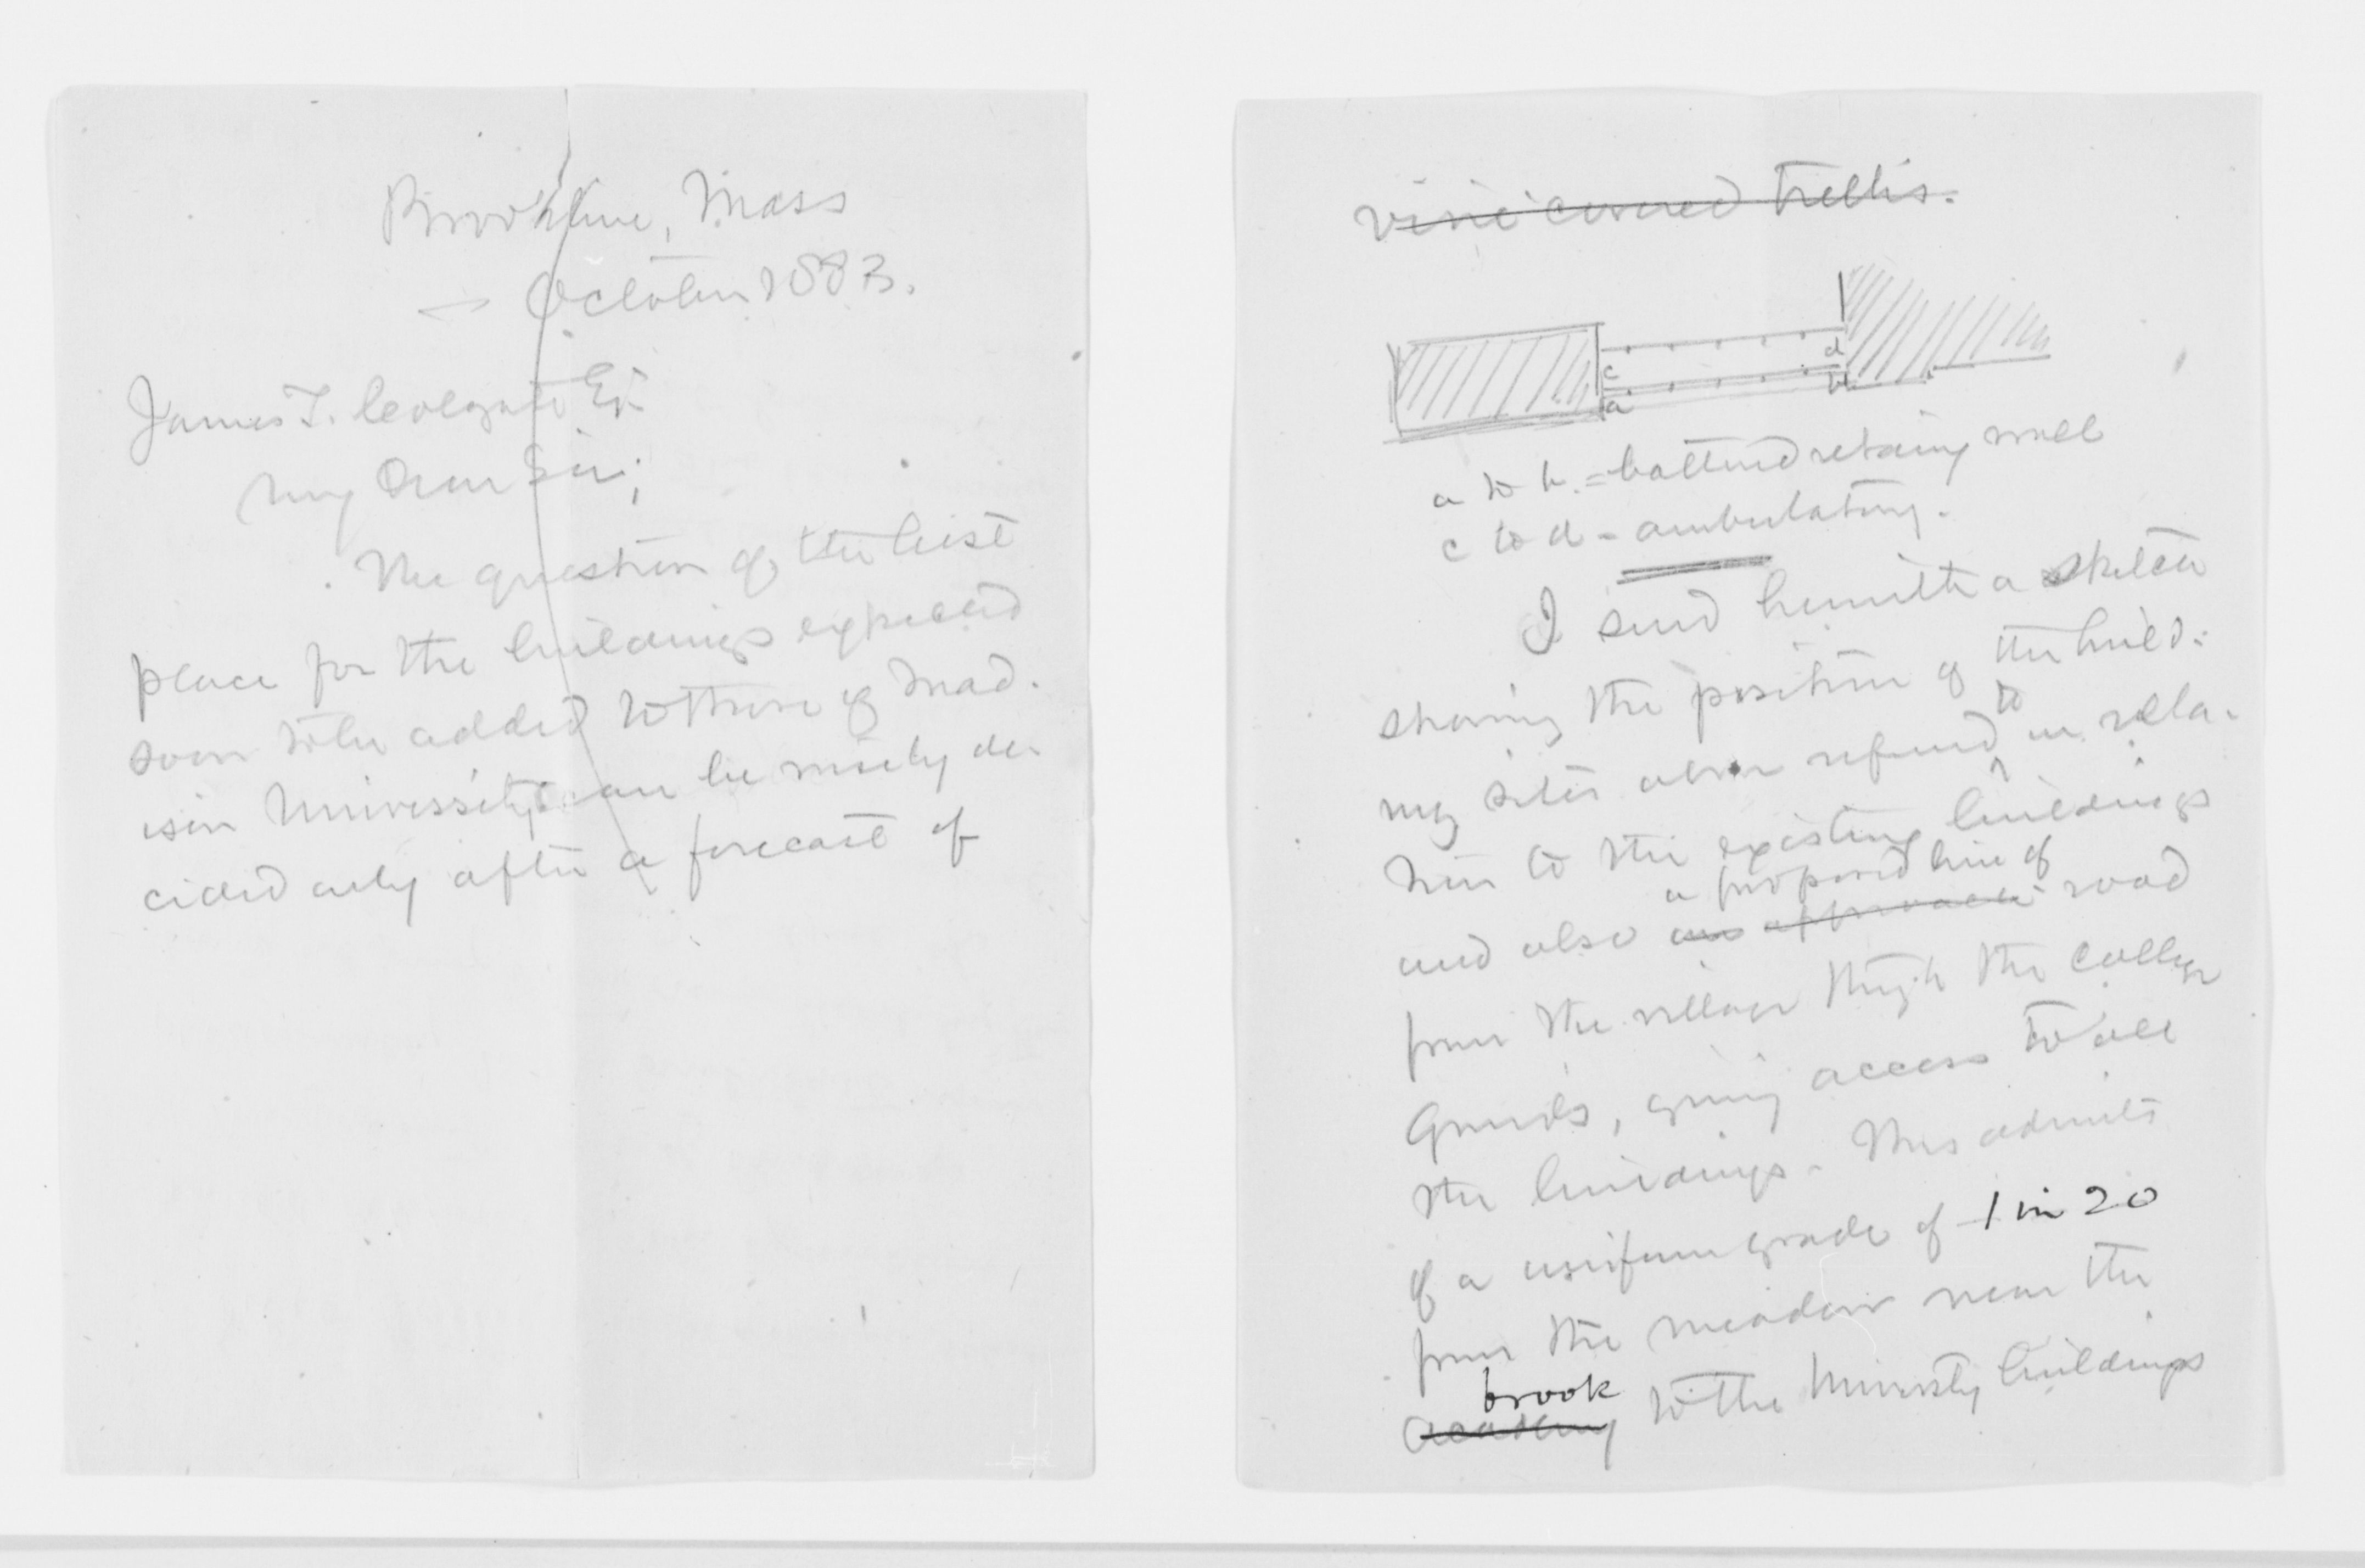 Brookline, Mass
— October 1883.
James T. Colegate Esq.
My Dear Sir;
The question of the best
place for the buildings expected
soon to be added to those of Mad-
ison University can be wisely de-
cided only after a forecast of
vine covered trellis.
d
c
b
a
a to b. = battered retaing wall
c to d - ambulatory.
I send herewith a sketch
showing the position of the build-
ing sites above referred to in rela-
tion to the existing buildings
a proposed line of
and also an approach road
from the village through the College
Grounds, giving access to all
the buildings. This admits
of a uniform grade of 1 in 20
from the meadow near the
brook
Academy to the University buildings